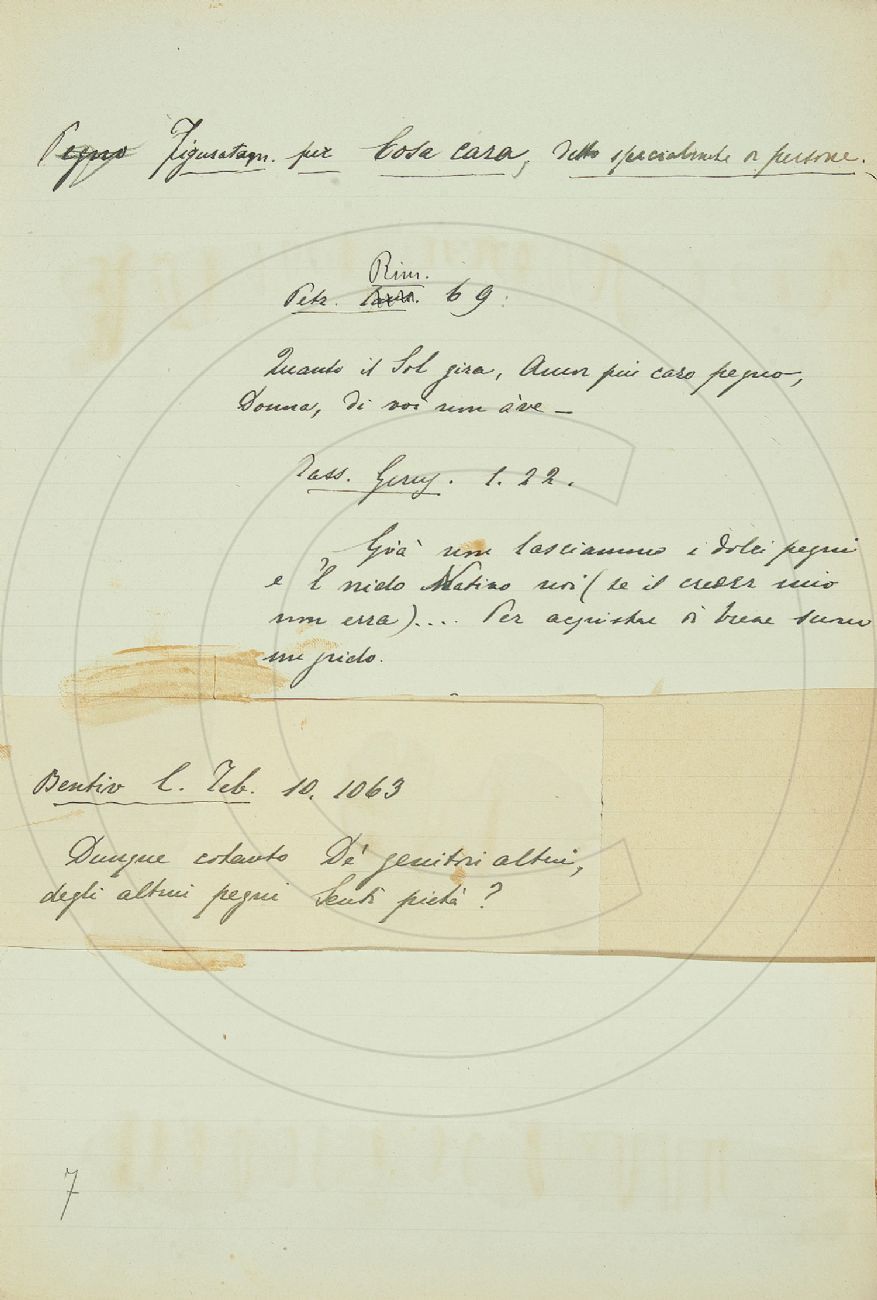 Pegno Figuratam. per Cosa cara, detto specialmente di persone.
Rim.
Petr. 69:
Quanto il Sol gira, Amor più caro pegno,
Donna, di voi non àve —
Tass. Ger. 1. 22.
Già non lasciammo i dolci pegni
e 'l nido Nativo noi (se il creder mio
non erra).... Per acquistar di breve suono
un grido.
Bentiv C. Teb. 10. 1063
Dunque cotanto De' genitori altrui,
degli altrui pegni Senti pietà?
7